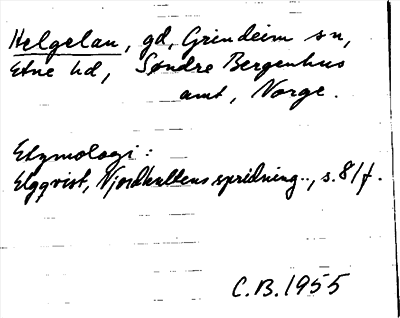 Helgelan, gd, Grindeim sn,
Etne hd, Søndre Bergenhus
amt, Norge.
Etymologi:
Elgqvist, Njordkultens spridning.., s. 81f.
C.B. 1955